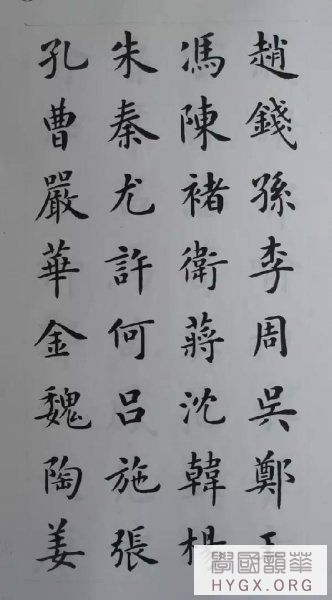 趙錢孫李周吳鄭王
馮陳褚衛蔣沈韓楊
朱秦尤許何呂施張
孔曹嚴華金魏陶姜
華韻國學
HYGX.ORG